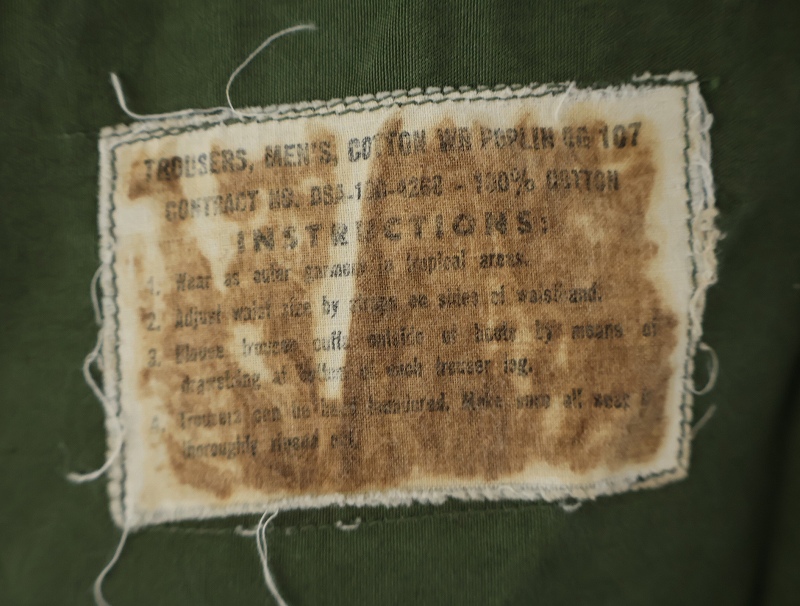 TROUSERS, MEN'S, COTTON WR POPLIN OG 107
CONTRACT NO. DSA-100-4268 - 100% COTTON
INSTRUCTIONS:
1. Wear as outer garment in tropical areas.
2. Adjust waist size by straps on sides of waistband.
3. Blouse trouser cuffs outside of boots by means of
drawstring at bottom of each trouser leg.
4. Trousers can be hand laundered. Make sure all soap is
thoroughly rinsed out.